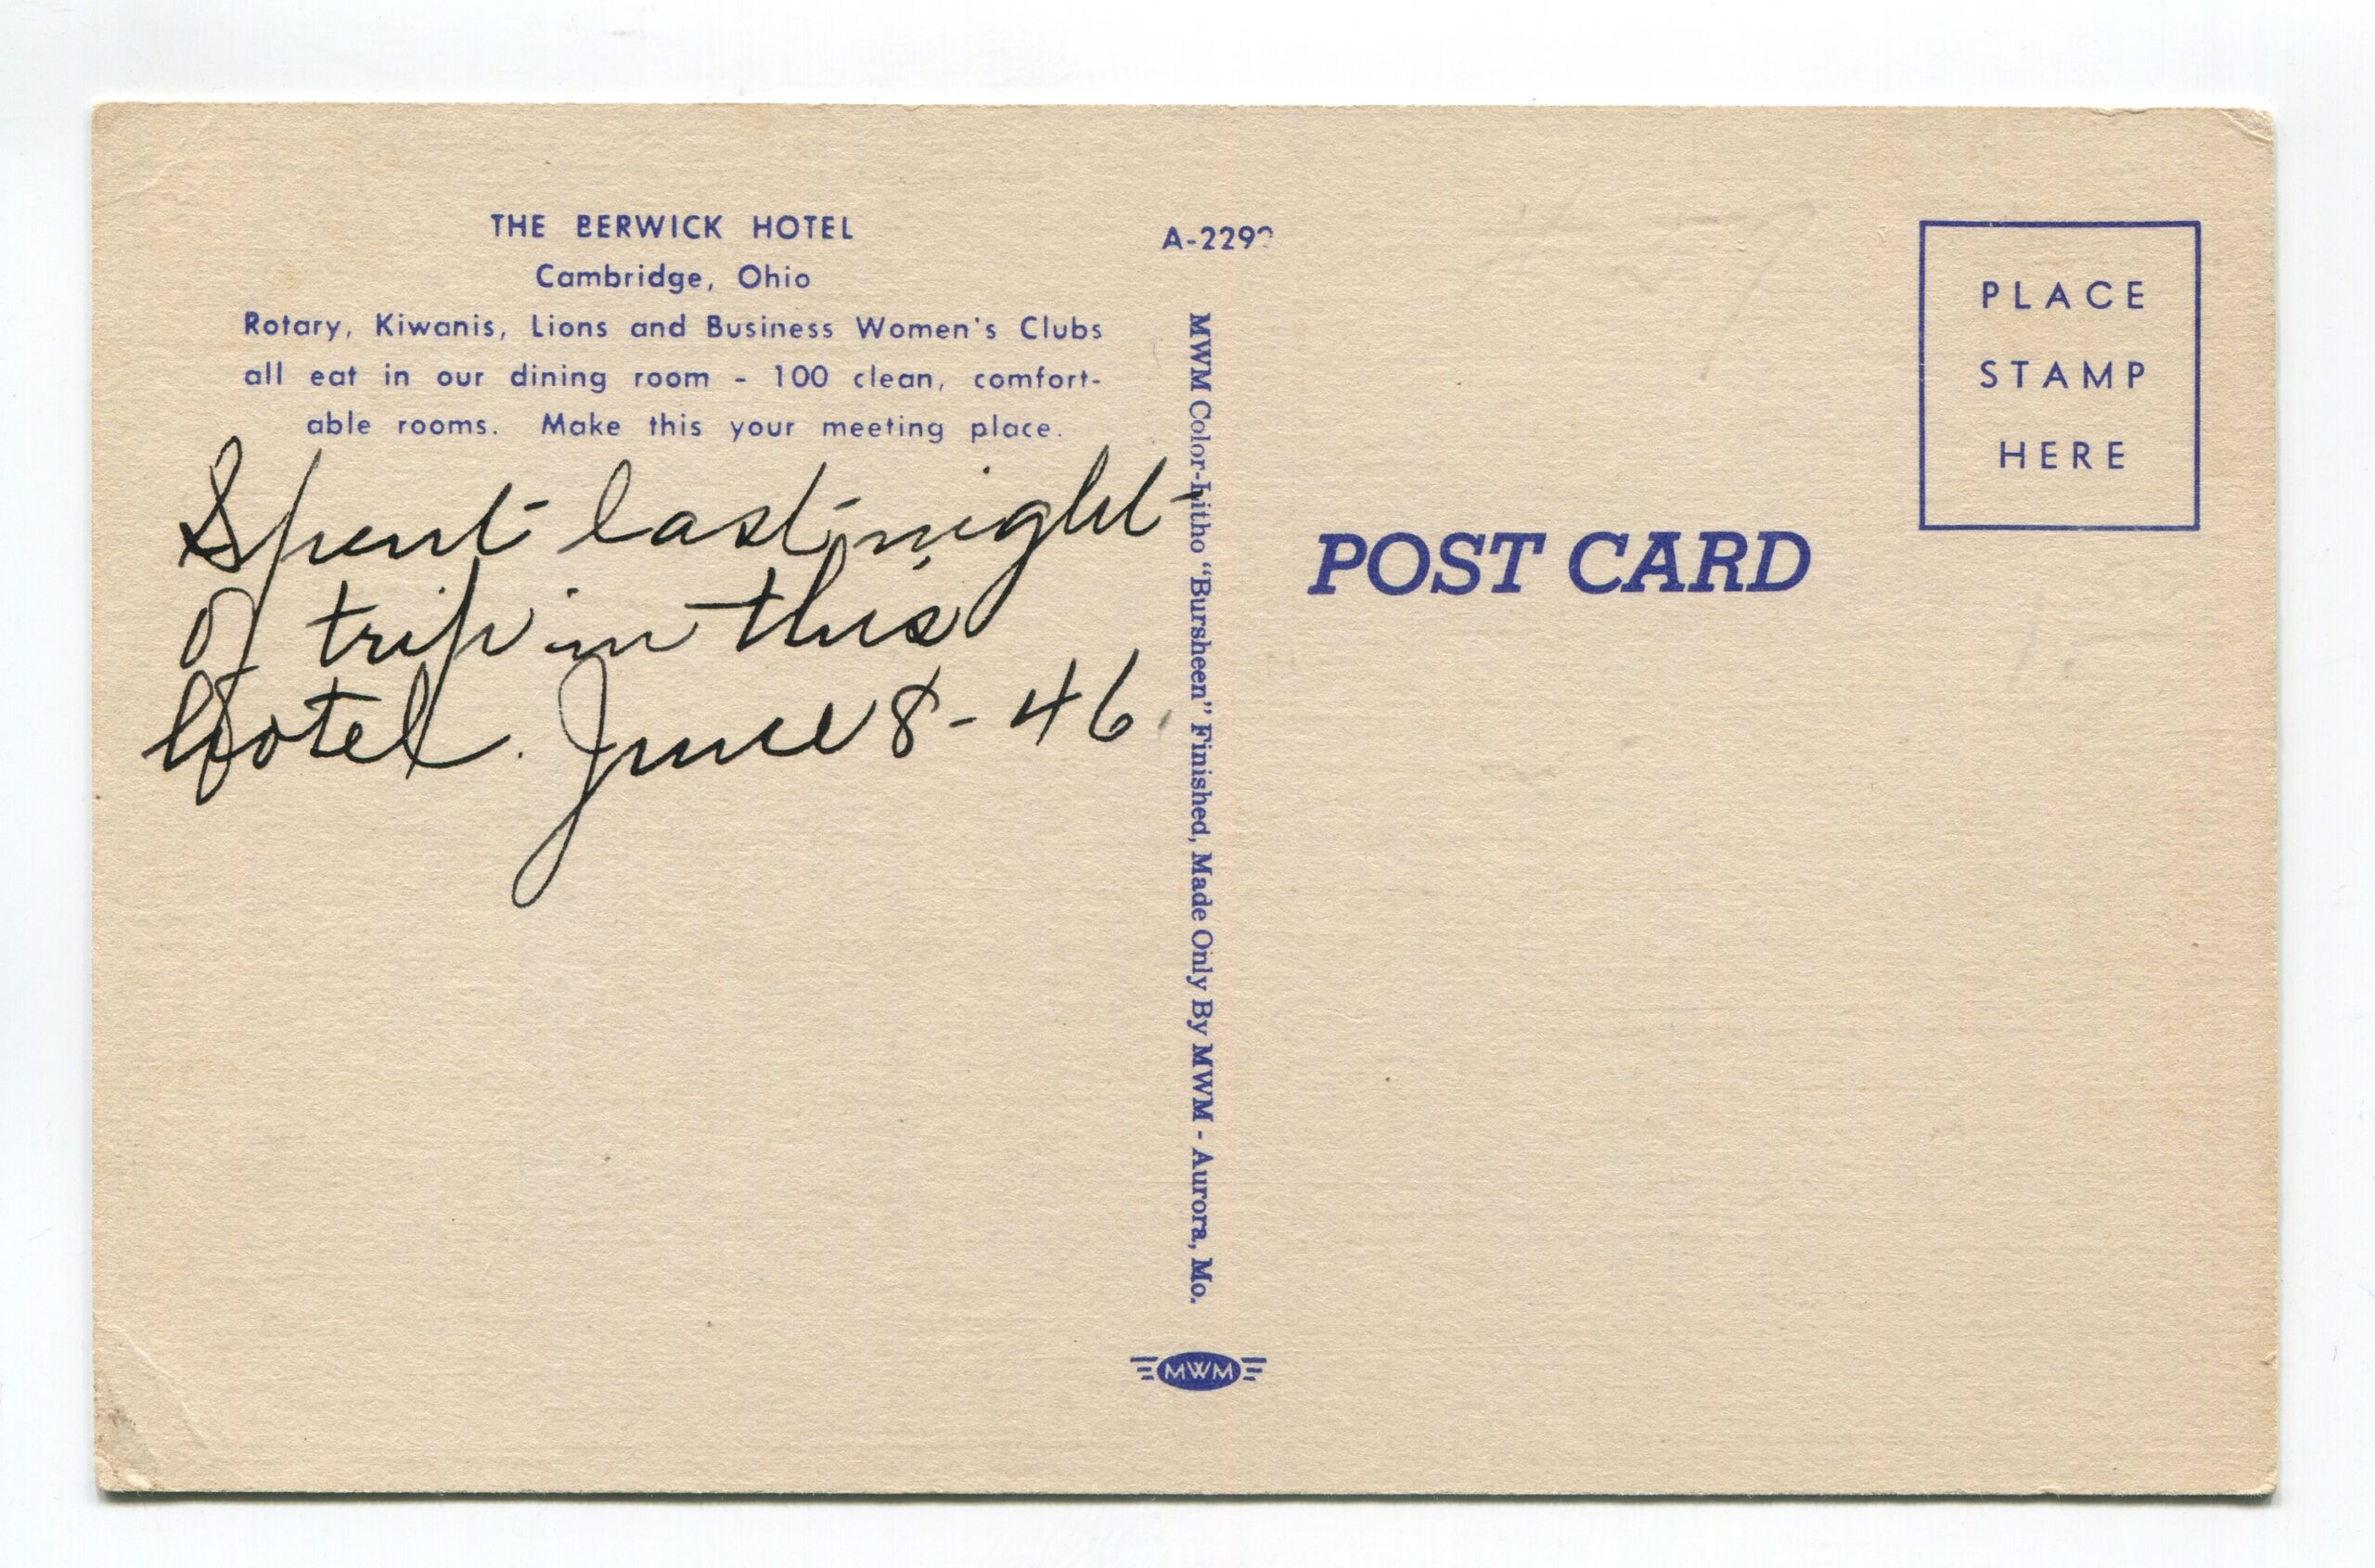 THE BERWICK HOTEL
Cambridge, Ohio
Rotary, Kiwanis, Lions and Business Women's Clubs
all eat in our dining room - 100 clean, comfort-
able rooms. Make this your meeting place.
Spent last night
of trip in this
Hotel. June 8-46.
MWM Color-Litho "Bursheen" Finished, Made Only By MWM - Aurora, Mo.
MWM
PLACE
STAMP
HERE
POST CARD